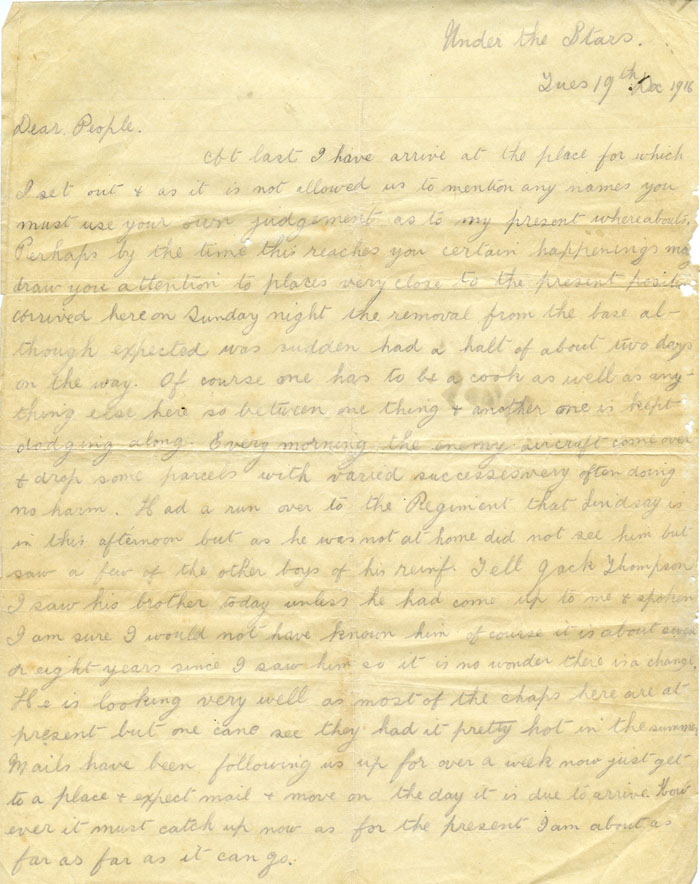 Under the Stars.
Tues 19th Dec 1916
Dear People.
At last I have arrive at the place for which
I set out & as it is not allowed us to mention any names you
must use your own judgement as to my present whereabouts.
Perhaps by the time this reaches you certain happenings may
draw you attention to places very close to the present position
Arrived here on Sunday night the removal from the base al-
though expected was sudden had a halt of about two days
on the way. Of course one has to be a cook as well as any-
thing else here so between one thing & another one is kept
dodging along. Every morning the enemy aircraft come over
& drop some parcels with varied successes very often doing
no harm. Had a run over to the Regiment that Lindsay is
in this afternoon but as he was not at home did not see him but
saw a few of the other boys of his reinf. Tell Jack Thompson
I saw his brother today unless he had come up to me & spoken
I am sure I would not have known him of course it is about seven
or eight years since I saw him so it is no wonder there is a change.
He is looking very well as most of the chaps here are at
present but one cano see they had it pretty hot in the summer
Mails have been following us up for over a week now just get
to a place & expect mail & move on the day it is due to arrive. How
ever it must catch up now as for the present I am about as
far as far as it can go.